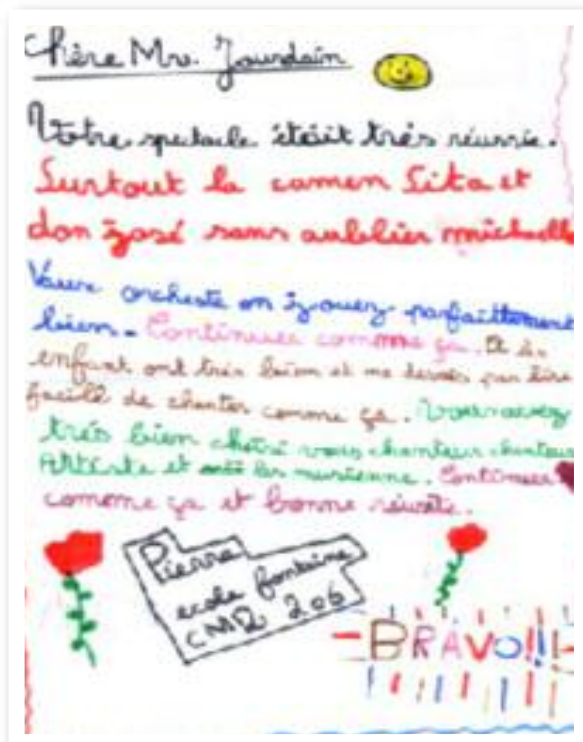 chère Mrs. Jourdain
Votre spectacle était très réussie.
Surtout la camen Sita et
don José sans oublier michaell
orchestre on jouez parfaittement
bien. Continuer comme ça. Et
enfant ont très bien et me par être
facill de chanter comme ça. vous avez
très bien vous chanteur chanteus
Artiste et les musienne. Continuer
comme ça et bonne réusite.
Pierre
ecole fontaine
CM2 206
BRAVO!!!